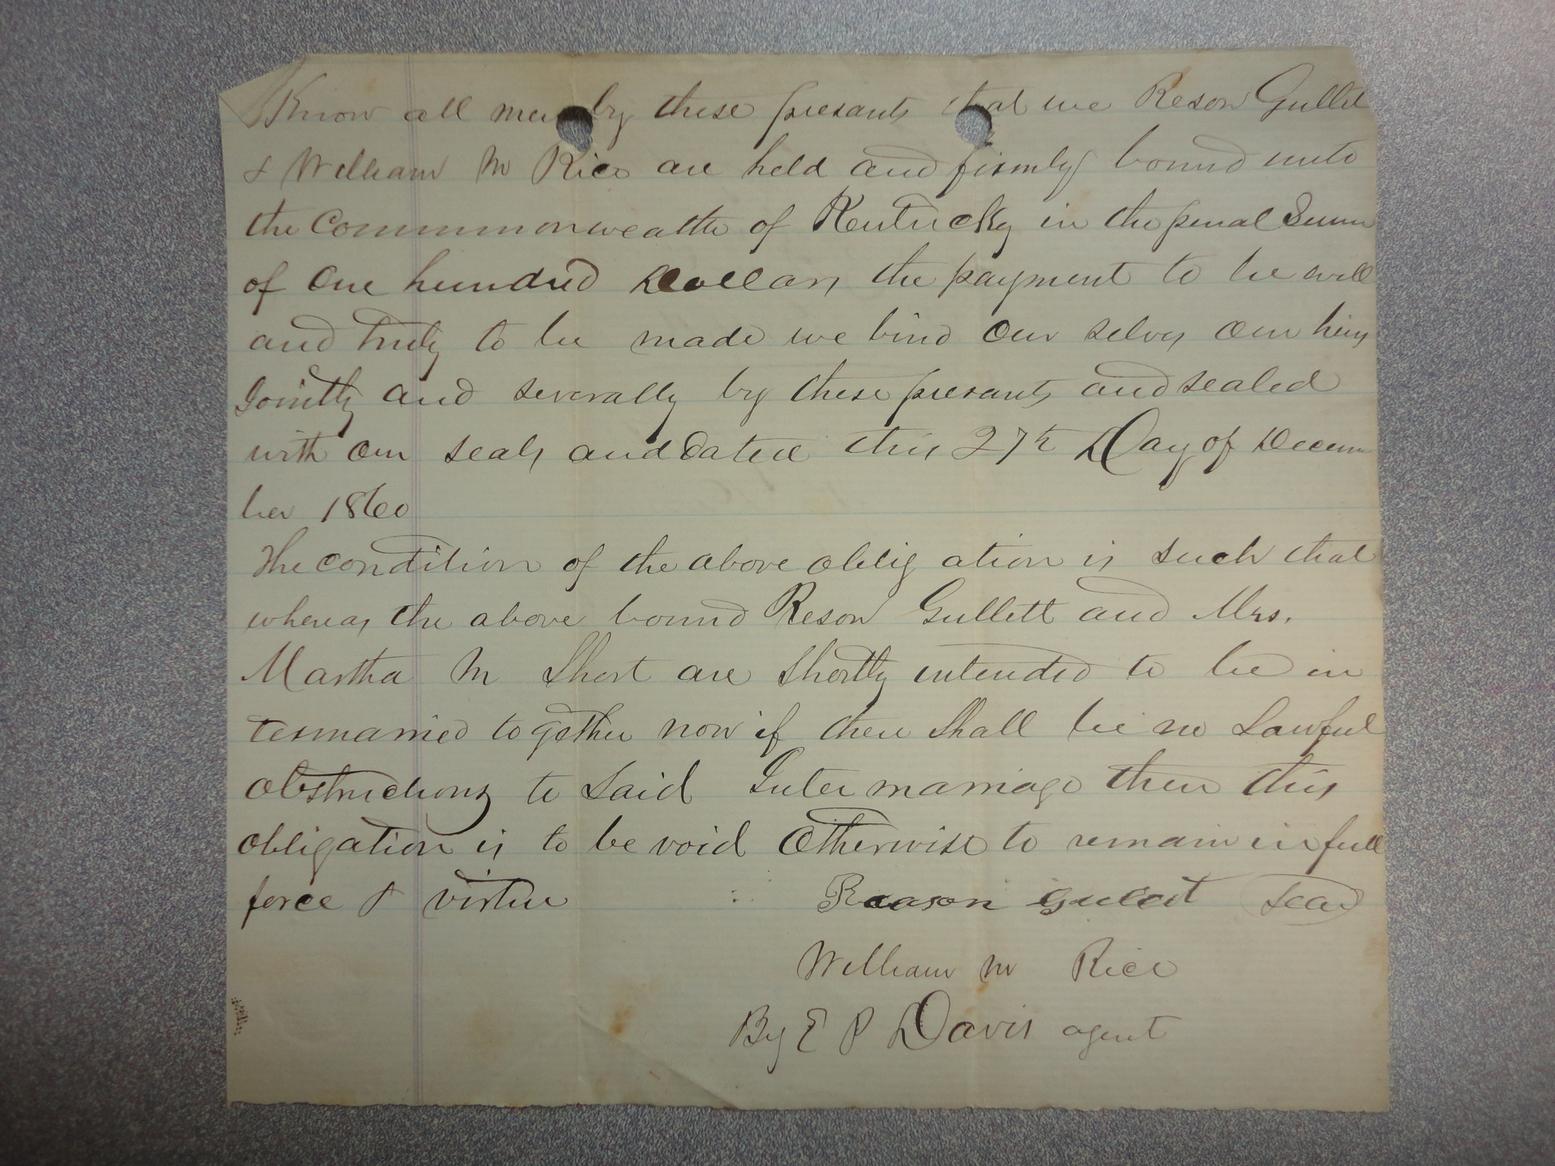 Know all men by these presants that we Reson Gullet
& William M Rice are held and firmly bound unto
the Commonwealth of Kentucky in the penal Sum
of One hundred Dollars the payment to be will
and truly to be made we bind Our selvs Our heirs
Jointly and severally by these presants and sealed
with our seals and dated this 27th Day of Decem
ber 1860
The condition of the above oblig ation is such that
whereas the above bound Reson Gullett and Mrs.
Martha M Short are Shortly intended to be in
termarried together now if there Shall be no Lawful
obstructions to Said Inter marriage then this
obligation is to be void Otherwise to remain in full
force & virtue Reason Gulet Seal
William M Rice
By E P Davis agent